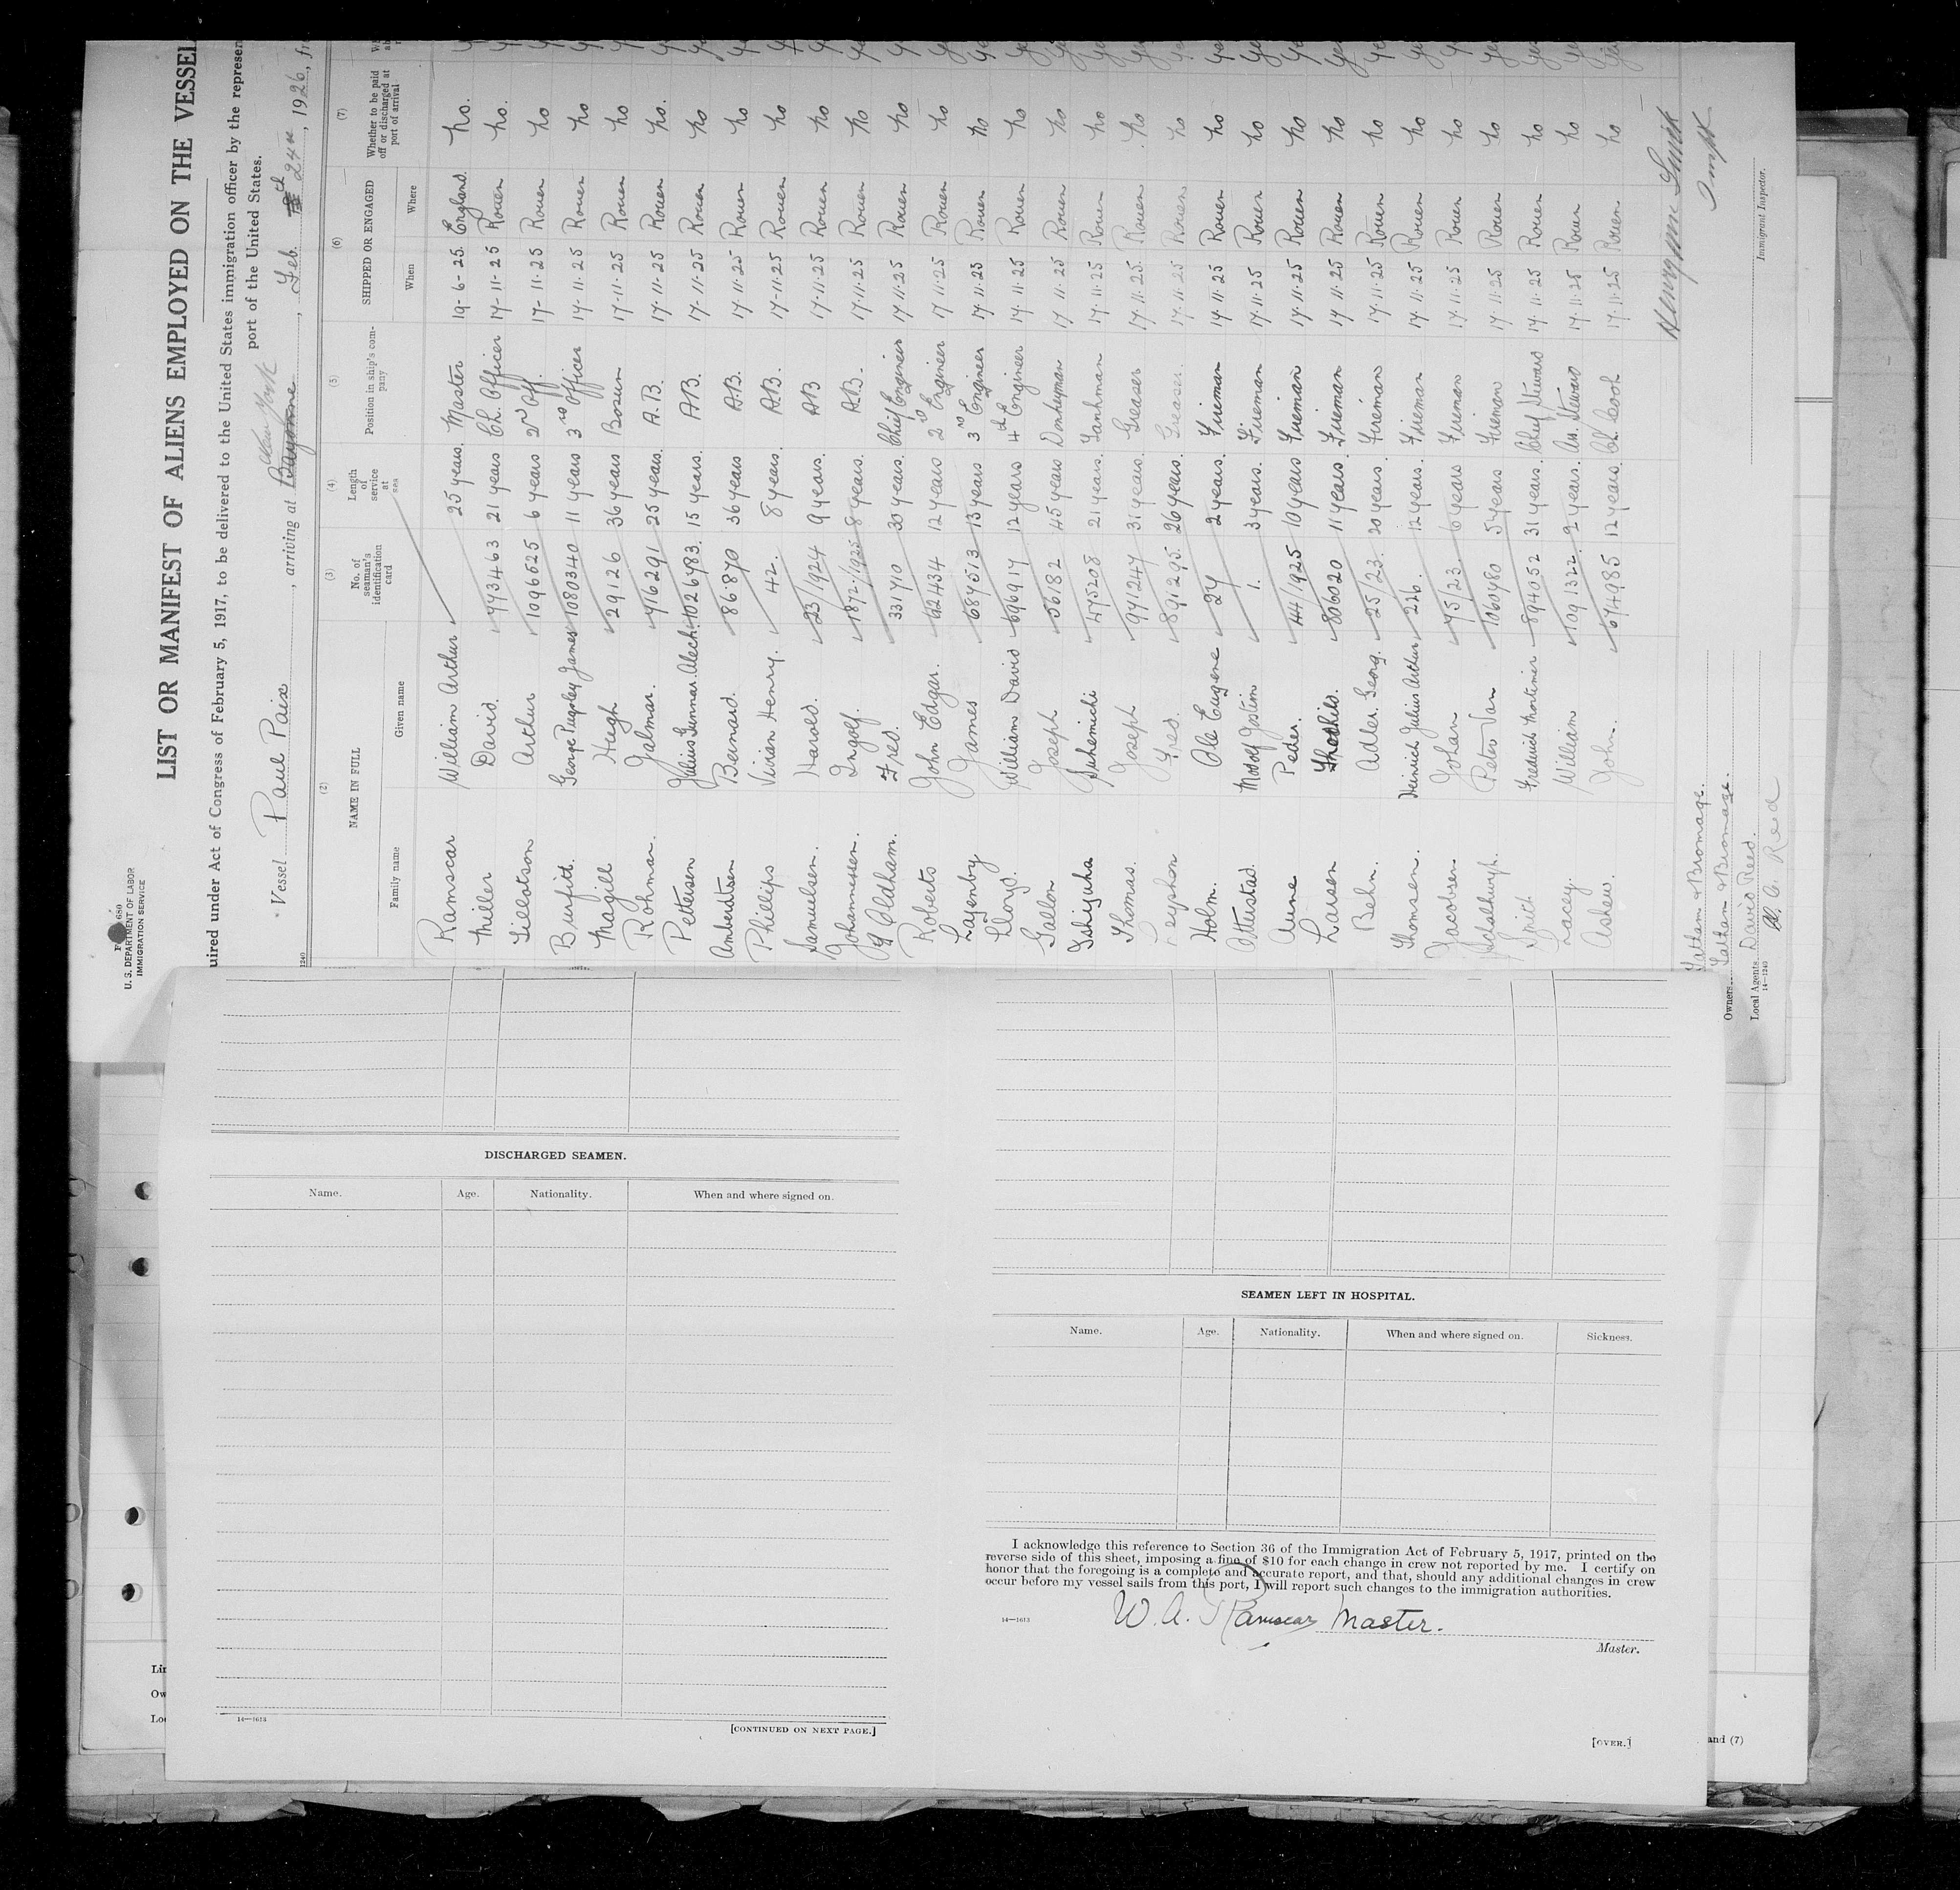 F 680
U. S. DEPARTMENT OF LABOR
IMMIGRATION SERVICE
LIST OR MANIFEST OF ALIENS EMPLOYED ON THE VESSEL
uired under Act of Congress of February 5, 1917, to be delivered to the United States immigration officer by the represen
port of the United States.
Vessel Paul Paix, arriving at Bayonne New York, Feb. 24th, 1926, fr
(2) (3) (4) (5) (6) (7)
NAME IN FULL No. of seaman's identification card Length of service at sea Position in ship's company SHIPPED OR ENGAGED Whether to be paid off or discharged at port of arrival
Family name Given name When Where
Ramscar William Arthur 25 years. Master 19-6-25. England. no.
Miller David. 973463 21 years Ch. Officer 17-11-25 Rouen no.
Tillotson Arthur 1096525 6 years 2nd Off. 17-11-25 Rouen no
Burfitt. George Pugsley James 1080340 11 years 3rd Officer 17-11-25 Rouen no
Magill Hugh 29126 36 years Bosun 17-11-25 Rouen no
Rohman. Jalmar. 716291 25 years. A.B. 17-11-25 Rouen no.
Pettersen Julius Gunnar Aleck. 1026783. 15 years. A.B. 17-11-25 Rouen no
Amberdtsen Bernard. 86870 36 years A.B. 17-11-25 Rouen no
Phillips Vivian Henry. 42. 8 years. A.B. 17-11-25 Rouen no
Samuelsen. Harold. 23/1924 9 years. AB 17-11-25 Rouen no
Johannessen. Ingolf. 1872/1925 8 years. A.B. 17-11-25 Rouen no
Oldham. Fred. 331710 30 years. Chief Engineer 17-11-25 Rouen no
Roberts John Edgar. 612434 12 years 2nd Engineer 17-11-25 Rouen no
Lazenby James 687513 13 years 3rd Engineer 17-11-25 Rouen no
Lloyd. William David 696917 12 years 4th Engineer 17-11-25 Rouen no
Gallon Joseph 56182 45 years Donkeyman 17-11-25 Rouen no
Ishiyuha 475208 21 years. Tankman 17-11-25 Rouen no
Thomas. Joseph 971247 31 years. Greaser 17-11-25. Rouen no
Leyshon Fred. 891295. 26 years. Greaser. 17-11-25 Rouen no
Holm. Ole Eugene 27 2 years. Fireman 17-11-25 Rouen no
Otterstad. Modolf Jostein 1. 3 years. Fireman 17-11-25 Rouen no
Aune Peder. 44/1925 10 years Fireman 17-11-25 Rouen no
Larsen 806020 11 years. Fireman 17-11-25 Rouen no
Behn. Adler Georg. 25/23. 20 years. Fireman 17-11-25 Rouen no
Thomsen. Heinrich Julius Arthur 226. 12 years. Fireman 17-11-25 Rouen no
Jacobsen Johan 75/23. 6 years Fireman 17-11-25 Rouen no
Peter Van 1060480 5 years Fireman 17-11-25 Rouen no
Smith Fredrick Mortimer 894052 31 years. Chief Steward 17-11-25 Rouen no
Lacey. William 1091322. 2 years. As. Steward 17-11-25 Rouen no
Askew. John. 674985 12 years. Ch. Cook 17-11-25 Rouen no
Tatham & Bromage.
Owners Tatham & Bromage.
Local Agents David Reed.
Reed
14—1240
Immigrant Inspector.
DISCHARGED SEAMEN.
Name. Age. Nationality. When and where signed on.
14—1613
[CONTINUED ON NEXT PAGE.]
SEAMEN LEFT IN HOSPITAL.
Name. Age. Nationality. When and where signed on. Sickness.
I acknowledge this reference to Section 36 of the Immigration Act of February 5, 1917, printed on the
reverse side of this sheet, imposing a fine of $10 for each change in crew not reported by me. I certify on
honor that the foregoing is a complete and accurate report, and that, should any additional changes in crew
occur before my vessel sails from this port, I will report such changes to the immigration authorities.
14—1613
W. A. Ramscar Master.
Master.
[OVER.]
and (7)